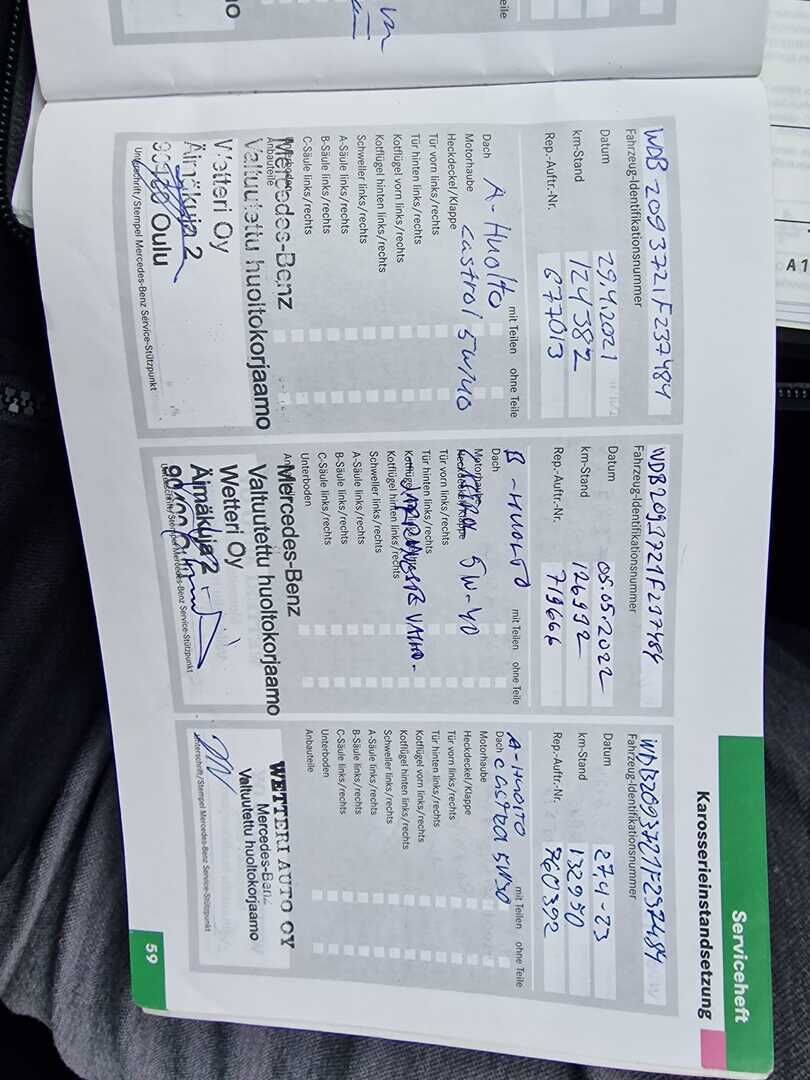 Serviceheft
Karosserieinstandsetzung
WDB2093721F237484
Fahrzeug-Identifikationsnummer
Datum 29.4.2021
km-Stand 124382
Rep.-Auftr.-Nr. 677013
mit Teilen ohne Teile
A-Huolto
Dach
castrol 5w40
Motorhaube
Heckdeckel/Klappe
Tür vorn links/rechts
Tür hinten links/rechts
Kotflügel vorn links/rechts
Kotflügel hinten links/rechts
Schweller links/rechts
A-Säule links/rechts
B-Säule links/rechts
C-Säule links/rechts
Anbauteile
Mercedes-Benz
Valtuutettu huoltokorjaamo
Wetteri Oy
Äimäkuja 2
90400 Oulu
Unterschrift/Stempel Mercedes-Benz Service-Stützpunkt
WDB2093721F237484
Fahrzeug-Identifikationsnummer
Datum 05.05.2022
km-Stand 126992
Rep.-Auftr.-Nr. 719666
mit Teilen ohne Teile
B-HUOLTO
Dach
Motorhaube
5W-40
Heckdeckel/Klappe
Tür vorn links/rechts
Tür hinten links/rechts
Kotflügel hinten links/rechts
Schweller links/rechts
A-Säule links/rechts
B-Säule links/rechts
C-Säule links/rechts
Unterboden
Mercedes-Benz
Valtuutettu huoltokorjaamo
Wetteri Oy
Äimäkuja 2
Unterschrift/Stempel Mercedes-Benz Service-Stützpunkt
WDB2093721F237484
Fahrzeug-Identifikationsnummer
Datum 27.4-23
km-Stand 132950
Rep.-Auftr.-Nr. 760392
mit Teilen ohne Teile
A-HUOLTO
Dach
5W30
Motorhaube
Heckdeckel/Klappe
Tür vorn links/rechts
Tür hinten links/rechts
Kotflügel vorn links/rechts
Kotflügel hinten links/rechts
Schweller links/rechts
A-Säule links/rechts
B-Säule links/rechts
C-Säule links/rechts
Unterboden
Anbauteile
WETTERI AUTO OY
Mercedes-Benz
Valtuutettu huoltokorjaamo
Unterschrift/Stempel Mercedes-Benz Service-Stützpunkt
59